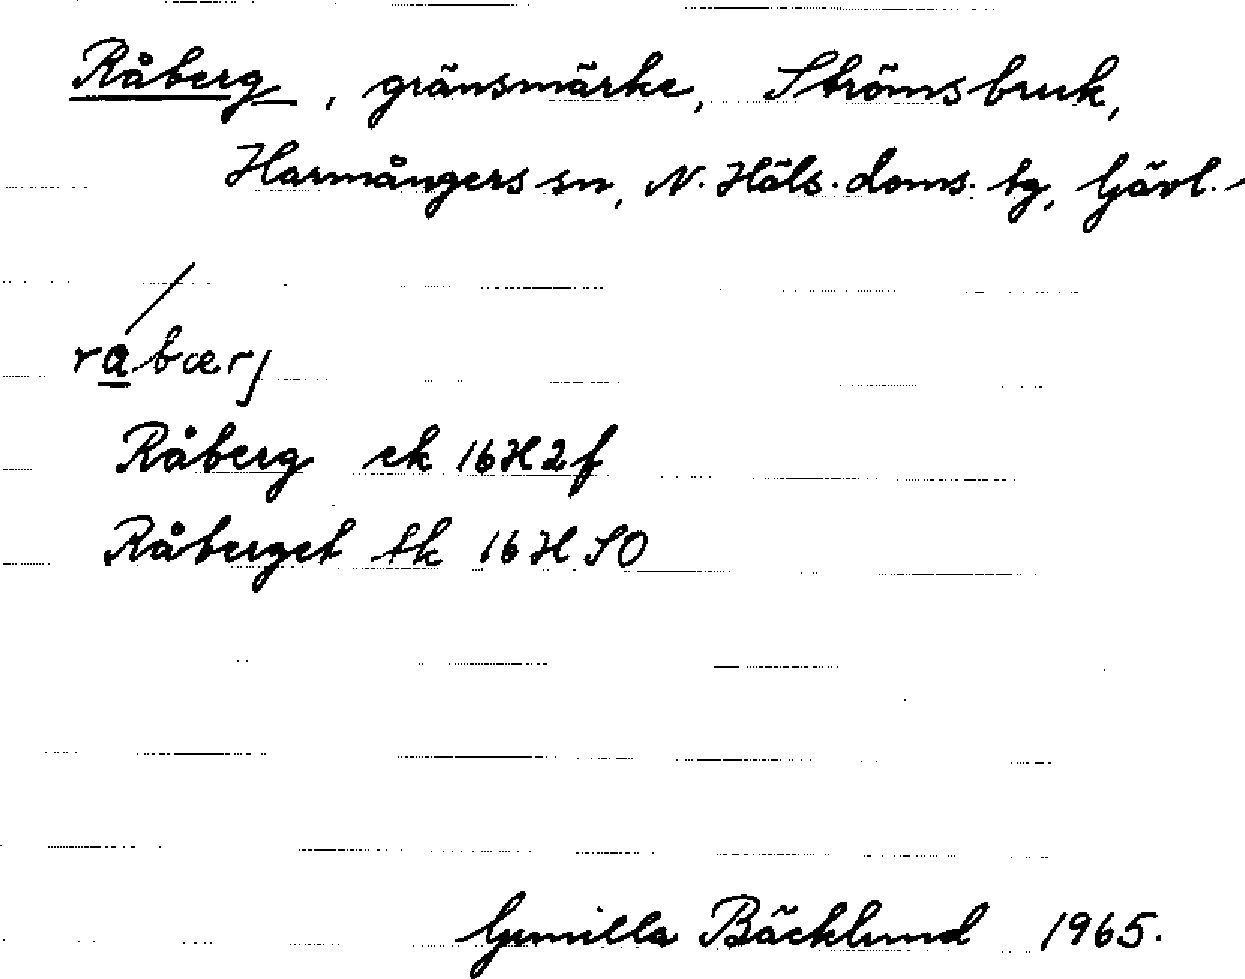 Råberg, gränsmärke, Strömsbruk,
Harmångers sn, N. Häls. doms. tg, Gävl.
råbærj
Råberg ek 16H2f
Råberget tk 16H SO
Gunilla Bäcklund 1965.